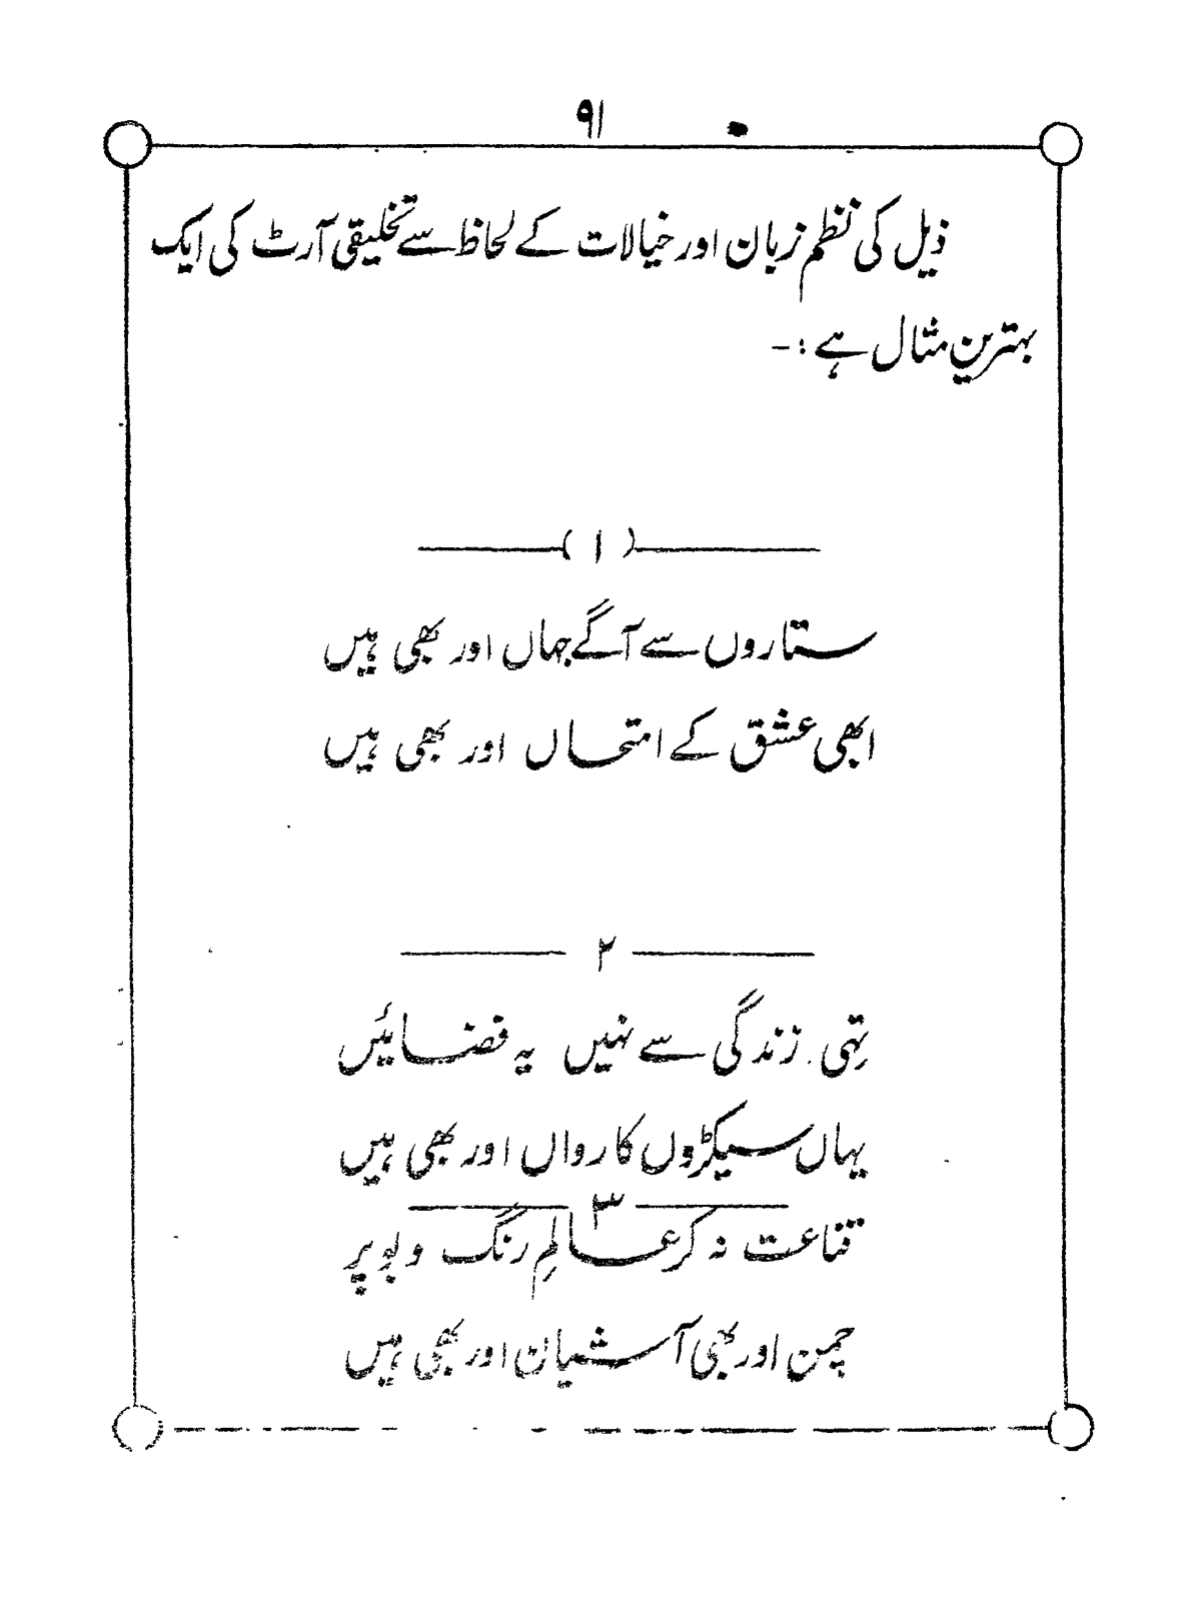 ۹۱
ذیل کی نظم زبان اور خیالات کے لحاظ سے تخلیقی آرٹ کی ایک
بہترین مثال ہے :-
( ۱ )
ستاروں سے آگے جہاں اور بھی ہیں
ابھی عشق کے امتحاں اور بھی ہیں
۲
تہی زندگی سے نہیں یہ فضائیں
یہاں سیکڑوں کارواں اور بھی ہیں
۳
قناعت نہ کر عالمِ رنگ و بو پر
چمن اور بھی آشیان اور بھی ہیں